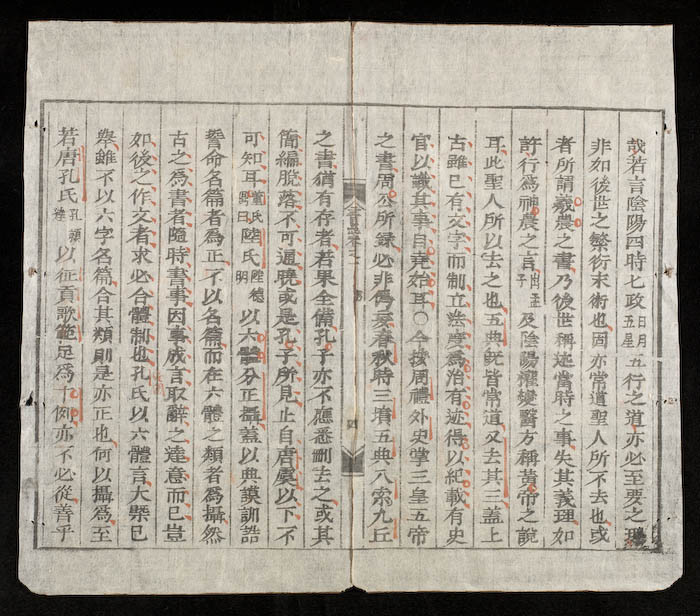 哉若言陰陽四時七政日月五星五行之道亦必至要之理
非如後世之繁衍末術也固亦常道聖人所不去也或
者所謂羲農之書乃後世稱述當時之事失其義理如
許行爲神農之言出孟子及陰陽權變醫方稱黃帝之說
耳此聖人所以去之也五典旣皆常道又去其三蓋上
古雖已有文字而制立法度爲治有迹得以紀載有史
官以識其事自堯始耳○今按周禮外史掌三皇五帝
之書周公所錄必非僞妄春秋時三墳五典八索九丘
四
之書猶有存者若果全備孔子亦不應悉刪去之或其
簡編脫落不可通曉或是孔子所見止自唐虞以下不
可知耳董氏鼎曰陸氏陸德明以六體分正攝蓋以典謨訓誥
誓命名篇者爲正不以名篇而在六體之類者爲攝然
古之爲書者隨時書事因事成言取辭之達意而已豈
如後之作文者求必合體制也孔氏以六體言大槩已
舉雖不以六字名篇合其類則是亦正也何以攝爲至
若唐孔氏孔穎達以征貢歌範足爲十例亦不必從善乎